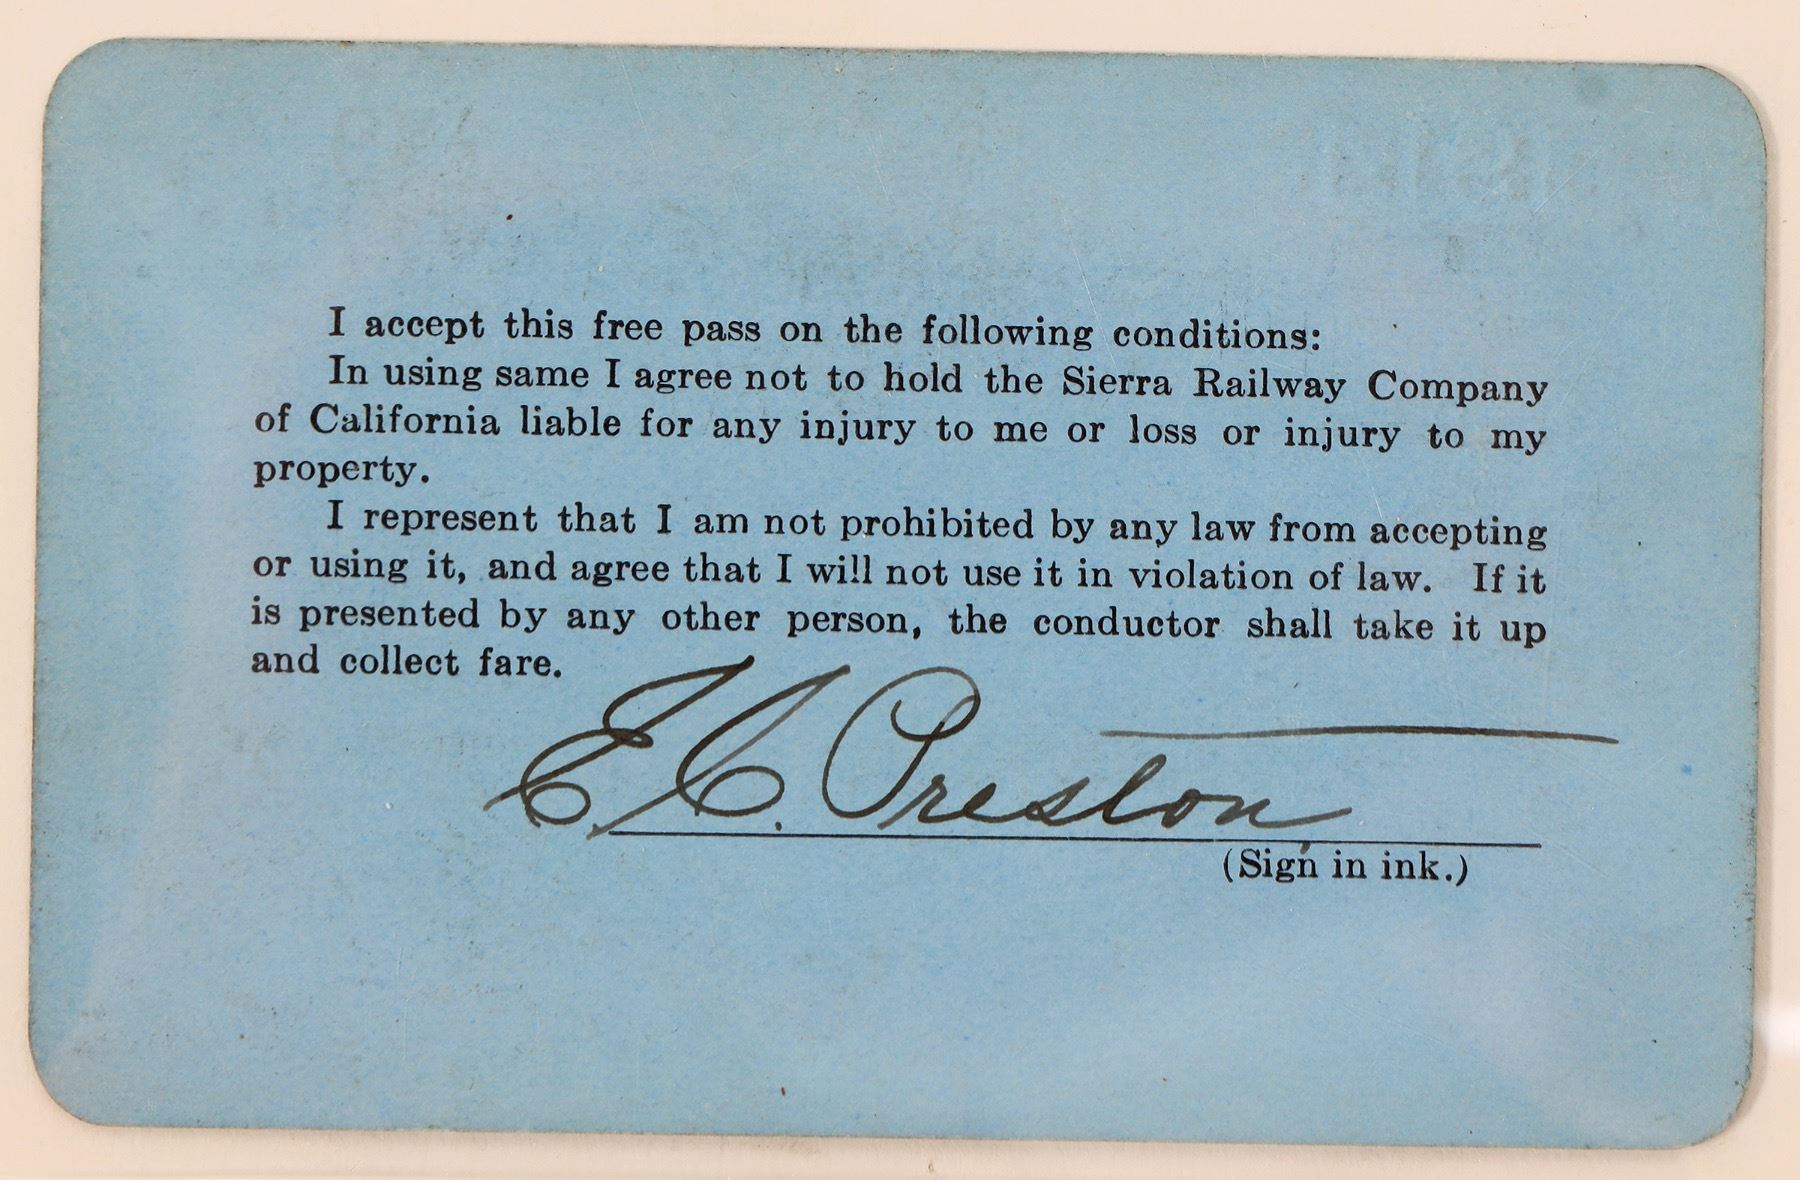 I accept this free pass on the following conditions:
In using same I agree not to hold the Sierra Railway Company
of California liable for any injury to me or loss or injury to my
property.
I represent that I am not prohibited by any law from accepting
or using it, and agree that I will not use it in violation of law. If it
is presented by any other person, the conductor shall take it up
and collect fare.
E. C. Preston
(Sign in ink.)